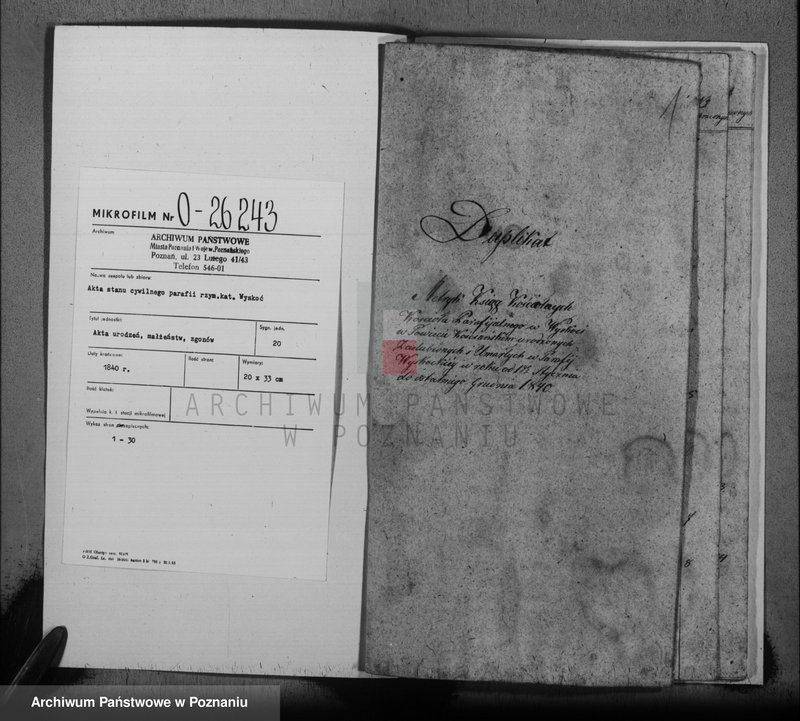 MIKROFILM Nr O-26243
Archiwum
ARCHIWUM PAŃSTWOWE
Miasta Poznania i Wojew. Poznańskiego
Poznań, ul. 23 Lutego 41/43
Telefon 546-01
Nazwa zespołu lub zbioru:
Akta stanu cywilnego parafii rzym.kat. Wyskoć
Tytuł jednostki:
Akta urodzeń, małżeństw, zgonów
Sygn. jedn.
20
Daty krańcowe:
1840 r.
Ilość stron:
Wymiary:
20 x 33 cm
Ilość klatek:
Wypełnia k. t. stacji mikrofilmowej
Wykaz stron
1 - 30
Duplikat
Metryk Ksiąg Kościelnych
Kościoła Parafijalnego w Wyskoci
w Powiecie Kościańskim urodzonych
Zaślubionych i Umarłych w Parafji
Wyskockiej w roku od 1go Stycznia
do ostatniego Grudnia 1840
ARCHIWUM PAŃSTWOWE
W POZNANIU
Archiwum Państwowe w Poznaniu